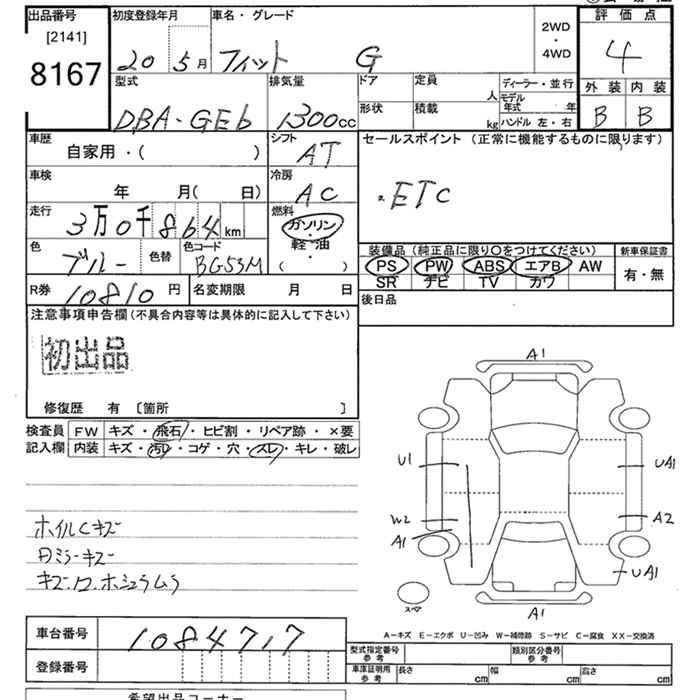 出品番号
[2141]
8167
初度登録年月
20 5月
車名・グレード
フィット G
2WD
・
4WD
評価点
4
外装 内装
B B
型式
DBA-GE6
排気量
1300cc
ドア
定員
人
形状
積載
kg
ディーラー・並行
モデル年式 年
ハンドル 左・右
車歴
自家用・( )
シフト
AT
セールスポイント (正常に機能するものに限ります)
・ETC
車検
年 月( 日)
冷房
AC
走行
3万0千864km
燃料
ガソリン
・
軽・油
・
( )
色
ブルー
色替
色コード
BG53M
装備品 (純正品に限り〇をつけてください)
PS PW ABS エアB AW
SR ナビ TV カワ
新車保証書
有・無
R券
10810円
名変期限 月 日
後日品
注意事項申告欄 (不具合内容等は具体的に記入して下さい)
初出品
修復歴 有 〔箇所 〕
検査員記入欄
FW キズ・飛石・ヒビ割・リペア跡・×要
内装 キズ・汚レ・コゲ・穴・スレ・キレ・破レ
ホイルCキズ
Dミラーキズ
A1
U1
UA1
W2
A1
A2
UA1
A1
スペア
A-キズ E-エクボ U-凹み W-補修跡 S-サビ C-腐食 XX-交換済
車台番号
1084717
登録番号
型式指定番号 参考
類別区分番号 参考
車庫証明用 参考
長さ cm
幅 cm
高さ cm
希望出品コーナー